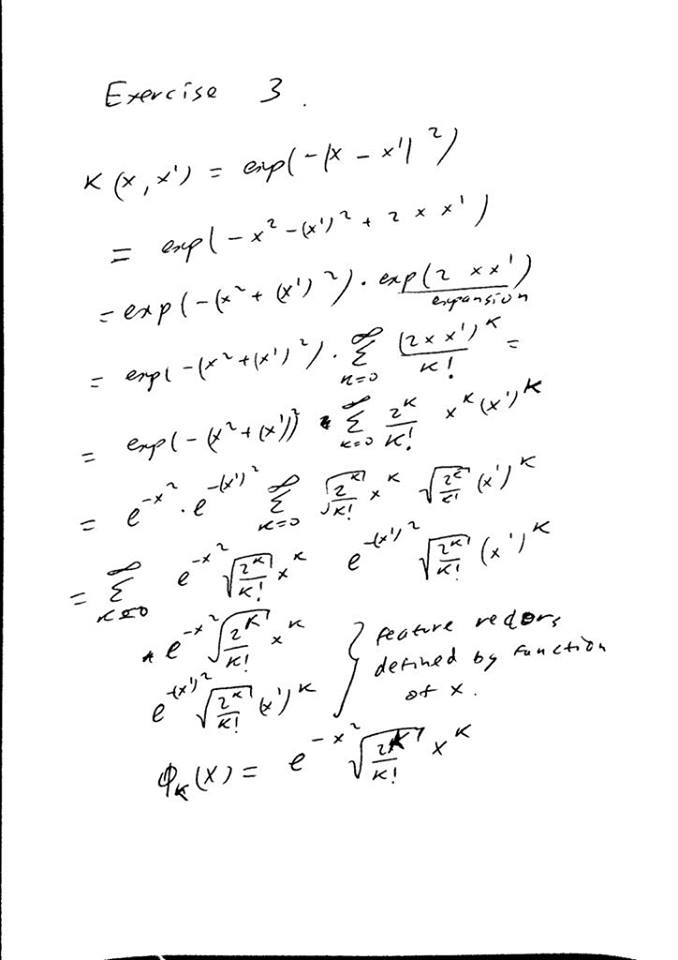 Exercise 3.
K(x, x') = exp(-(x - x')²)
= exp(-x² - (x')² + 2xx')
= exp(-(x² + (x')²) · exp(2xx')
expansion
= exp(-(x² + (x')²) · ∑_{k=0}^{∞} (2xx')^k / k! =
= exp(-(x² + (x'))² · ∑_{k=0}^{∞} 2^k / k! x^k (x')^k
= e^{-x²} · e^{-(x')²} ∑_{k=0}^{∞} √(2^k / k!) x^k √(2^k / k!) (x')^k
= ∑_{k=0}^{∞} e^{-x²} √(2^k / k!) x^k e^{-(x')²} √(2^k / k!) (x')^k
e^{-x²} √(2^k / k!) x^k
e^{-(x')²} √(2^k / k!) (x')^k
} feature vectors
defined by function
of x.
φ_k(x) = e^{-x²} √(2^k / k!) x^k